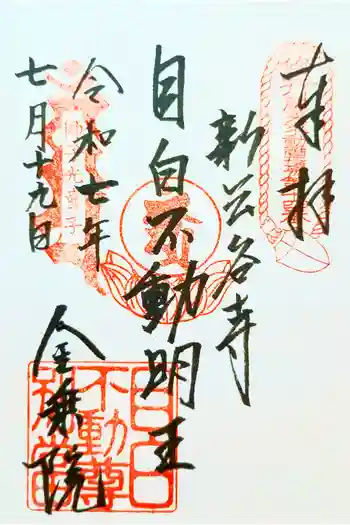 奉拝
新長谷寺
目白不動明王
令和七年
七月十九日
金乗院
目白
不動尊